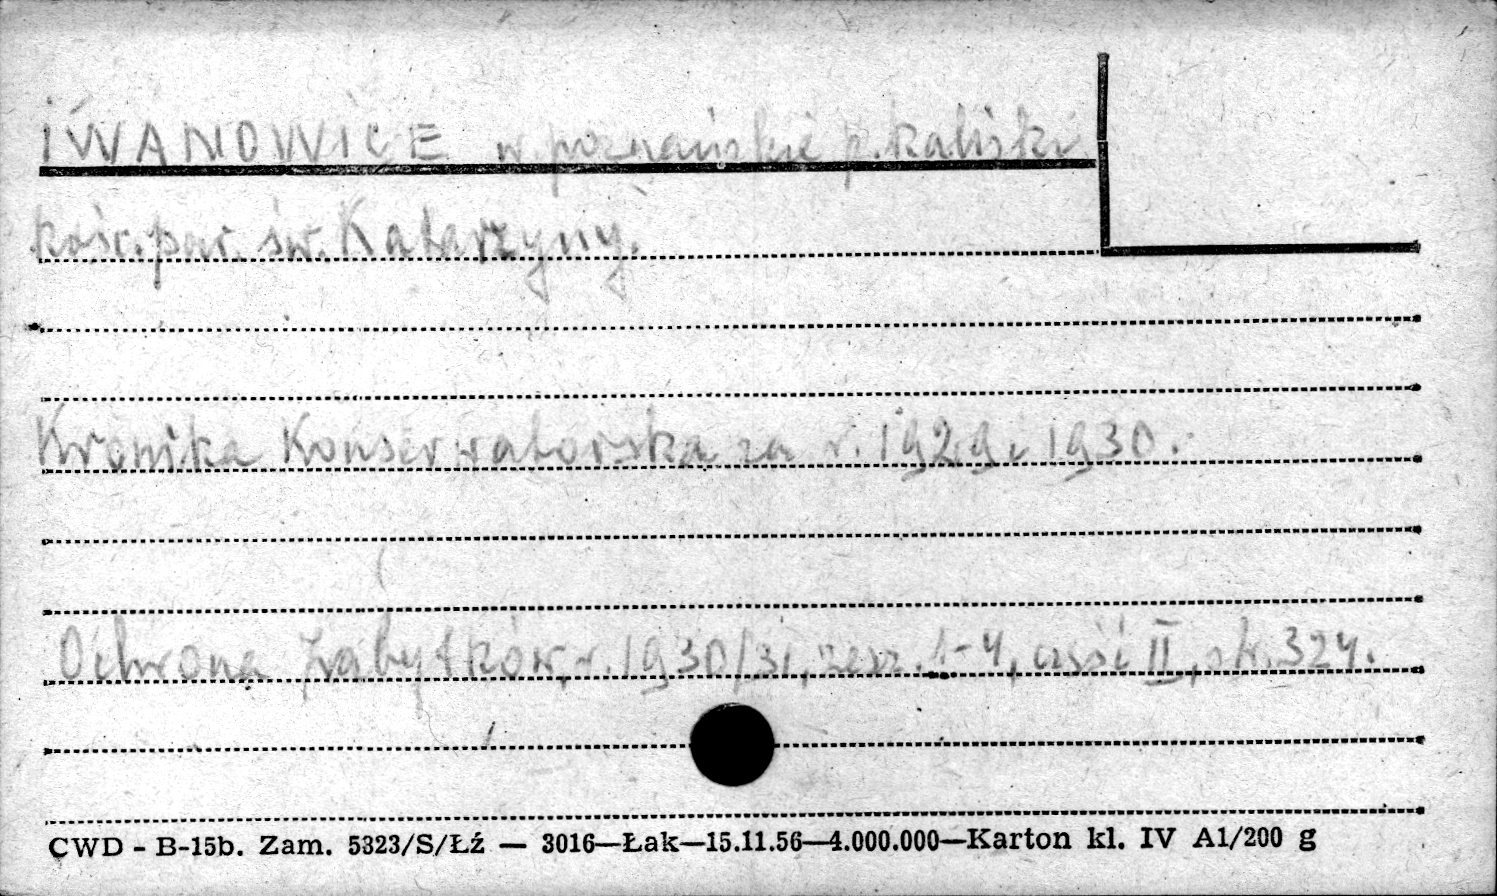 IWANOWICE w. poznańskie p. kaliski
kośc. par. św. Katarzyny.
Kronika Konserwatorska za r. 1929 i 1930.
Ochrona Zabytków, r. 1930/31, zesz. 1-4, część II, str. 324.
CWD - B-15b. Zam. 5323/S/Łź — 3016—Łak—15.11.56—4.000.000—Karton kl. IV A1/200 g